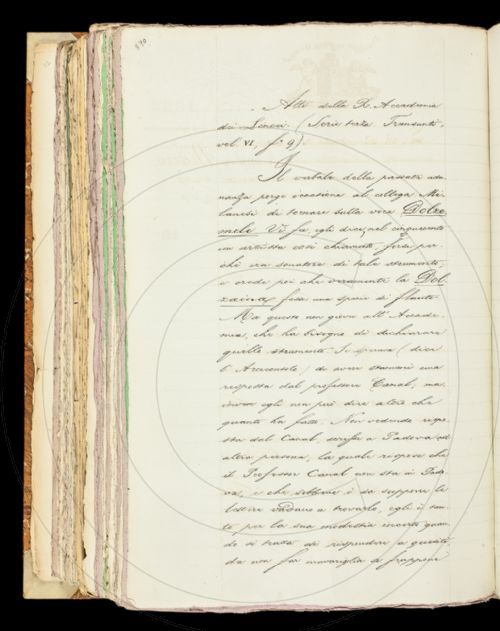 890
Atti della R. Accademia
dei Lincei. (Serie terza Transunti,
vol. VI, f.º 9).
Il verbale della passata adu-
nanza porge occasione al collega Mi-
lanesi di tornare sulla voce Dolze-
mele. Vi fu egli dice, nel cinquecento
un artista così chiamato, forse per-
chè era sonatore di tale strumento,
e crede poi che veramente la Dol-
zaina fosse una specie di flauto.
Ma questo non giova all'Accade-
mia, che ha bisogno di dichiarare
quello strumento. Si sperava (dice
l'Arciconsolo) di avere stamani una
risposta dal professore Canal, ma
invece egli non può dire altro che
quanto ha fatto. Non vedendo rispo-
sta dal Canal, scrisse a Padova ad
altra persona, la quale rispose che
il Professor Canal non sta in Pado-
va, e che sebbene è da supporre le
lettere vadano a trovarlo, egli è tan-
to per la sua modestia incerto quan-
do si tratta di rispondere a quesiti
da non far maraviglia se frappone